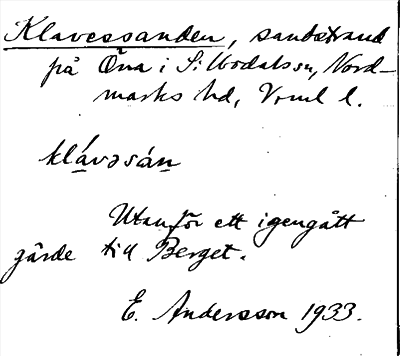 Klavessanden, sandstrand
på Öna i S: Ubodalssn, Nord-
marks hd, Vrml l.
klávəsán
Utanför ett igengått
gärde till Berget.
E. Andersson 1933.